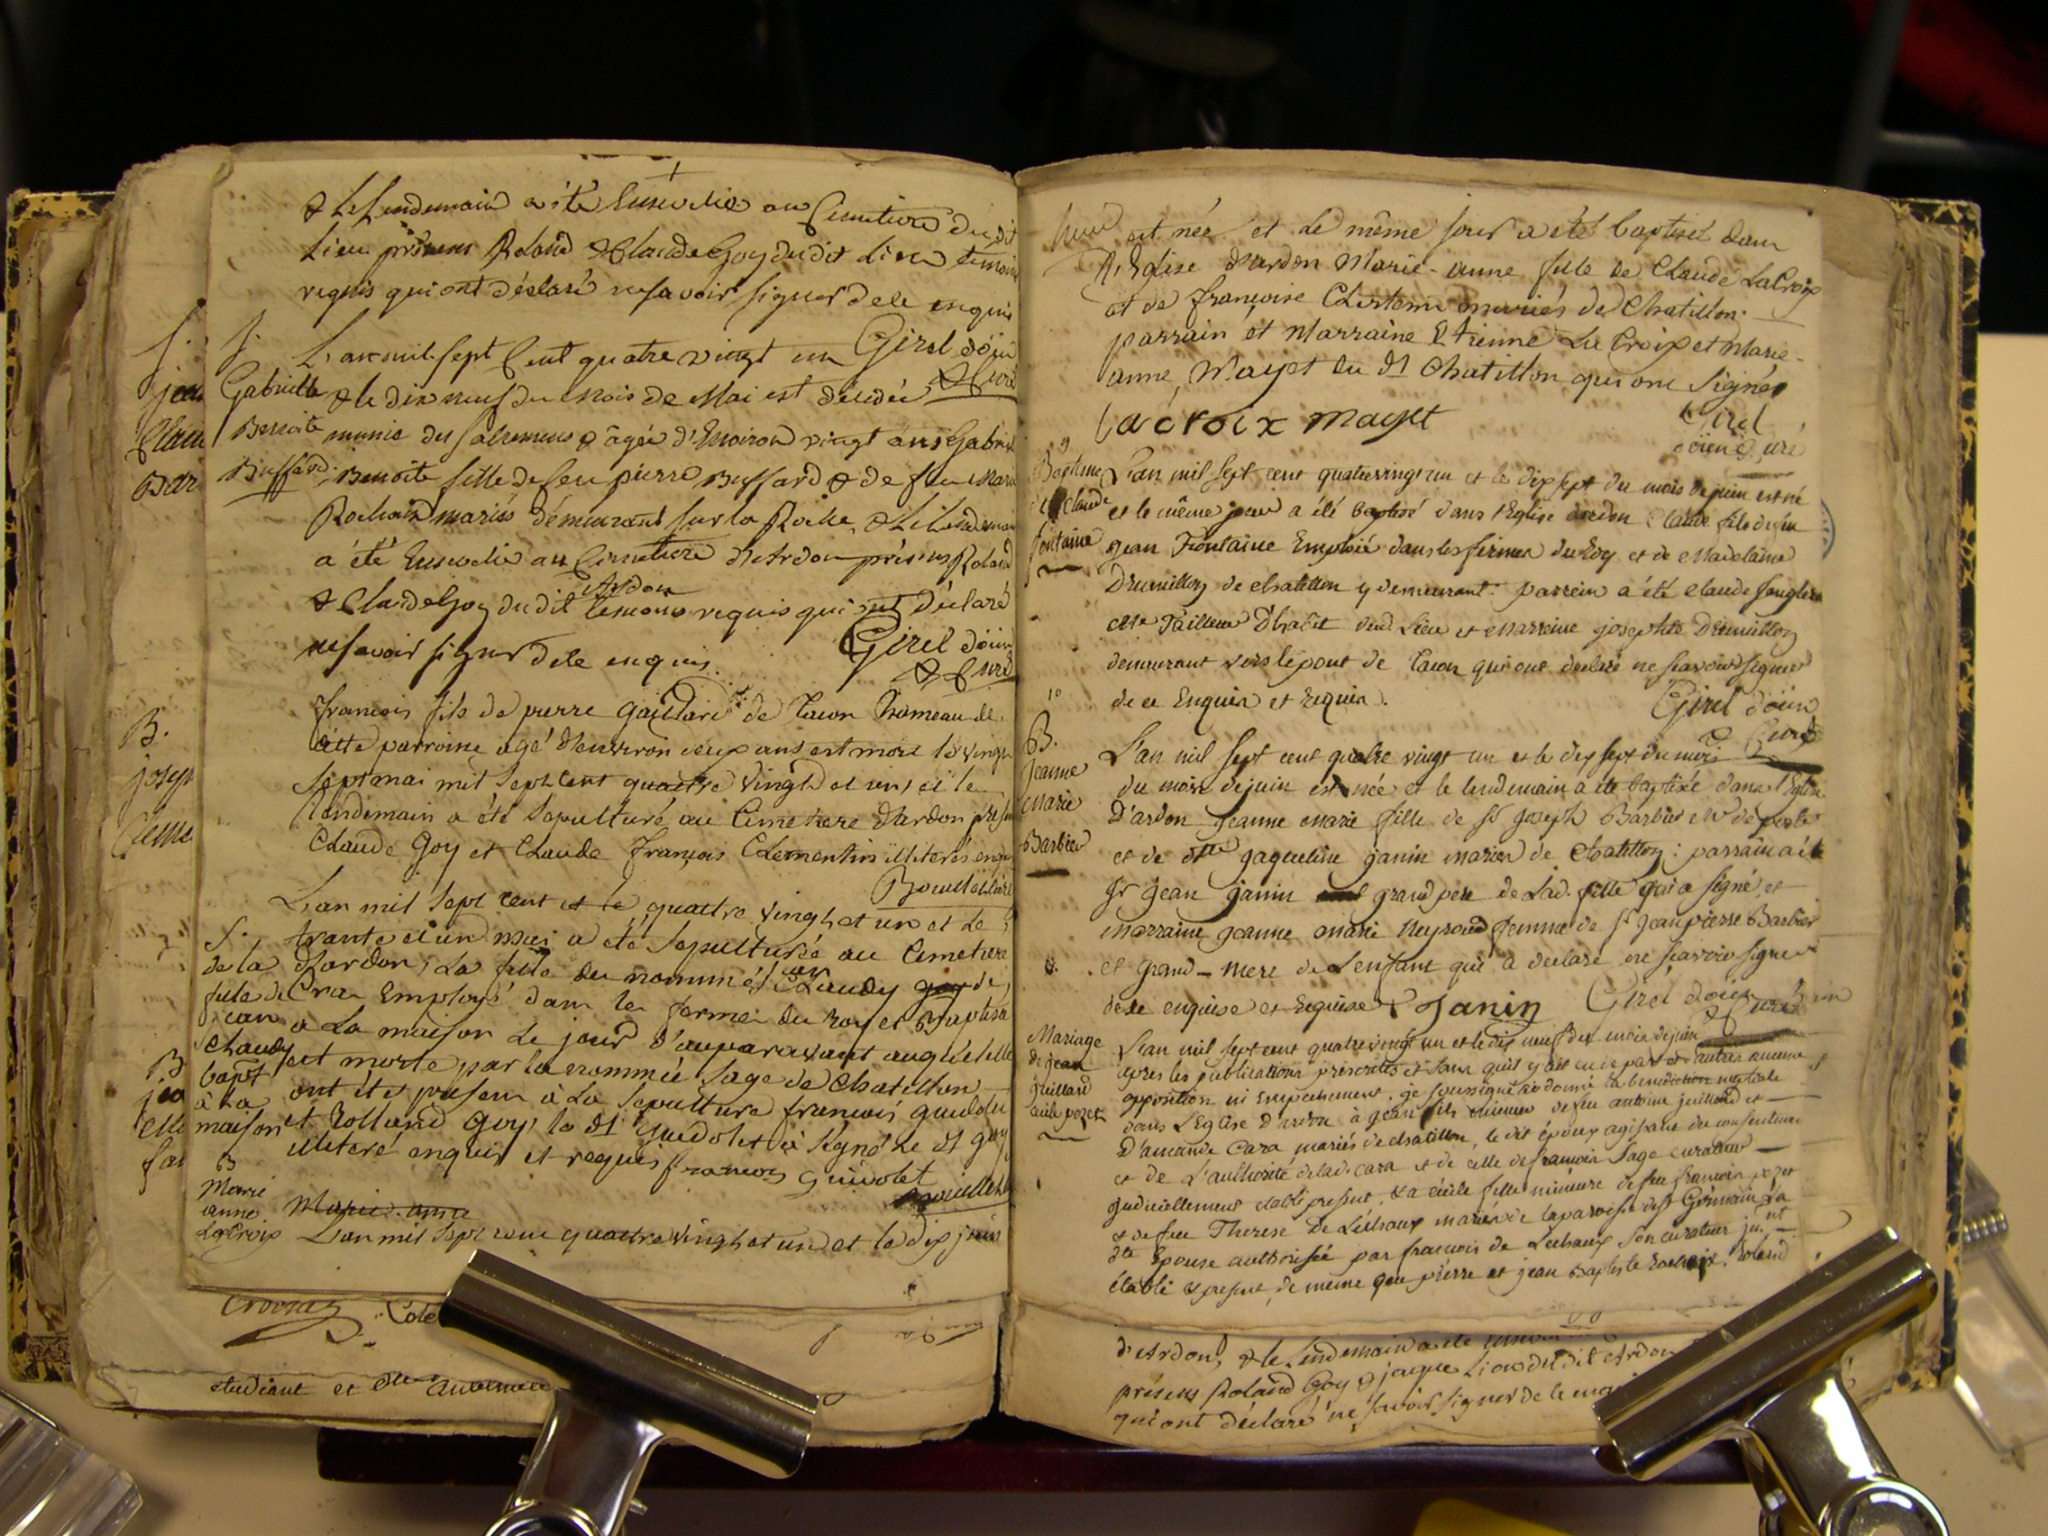 & le lendemain a été Ensevelie au Cimetiere du dit
lieu présens Roland & Claude Goy dudit lieu temoins
requis qui ont déclaré ne savoir signer de ce enquis
Girel doïen
& Curé
S.
Gabrielle
Benoite
Buffard
L'an mil sept Cent quatre vingt un
& le dix neuf du mois de Mai est décédée
munie des sacremens & âgée d'Environ vingt ans Gabrielle
Benoite fille de feu pierre Buffard & de feu Marie
Rochard mariés demeurant sur la Roche, & le lendemain
a été Ensevelie au Cimetiere d'Ardon présens Roland
& Claude Goy du dit Ardon temoins requis qui ont déclaré
ne savoir signer de ce enquis.
Girel doïen
& Curé
françois fils de pierre Gaillard de Tacon hameau de
cette parroisse agé d'environ deux ans est mort le vingt
sept mai mil sept cent quattre vingt et un, et le
lendemain a été sepulturé au Cimetiere d'ardon présens
Claude Goy et Claude françois Clementin illiterés enquis
S.
de la
fille de
jean
Chaudy
bapt
à la
maison
L'an mil sept cent et le quattre vingt et un et le
trante et un mai a été sepulturée au Cimetiere
d'ardon, la fille du nommé jean Chaudy de
Cras Employé dans les fermes du Roy et Baptisée
a la maison le jour d'auparavant auquel elle
est morte, par la nommée Sage de Chatillon
ont étés présens à la sepulture françois guidolet
et Rolland Goy, le dt guidolet à signé le dt goy
illiteré enquis et requis françois guidolet
B
Marie
anne
LaCroix
Marie. anne
L'an mil sept cent quattre vingt et un et le dix juin
est née et le même jour a été baptisée dans
l'Eglise d'ardon Marie-anne fille de Claude LaCroix
et de françoise Chretien mariés de Chatillon.
parrain et Marraine Etienne La Croix et Marie-
anne Mayet du dt Chatillon qui ont signés
lacroix mayet
Girel
doïen Curé
9
Baptême
de Claude
fontaine
L'an mil sept cent quatrevingt un et le dix sept du mois de juin est né
et le même jour a été baptisé dans l'Eglise d'ardon Claude fils de sieur
Jean Fontaine Emploié dans les fermes du Roy et de Madelaine
Drumillon de chatillon y demeurant. parrein a été Claude
Tailleur d'habit dud. Lieu et marreine josephte Drumillon
demeurant vers le pont de Tacon qui ont déclaré ne sçavoir signer
de ce Enquis et Requis.
Girel doïen
& Curé
10
B.
Jeanne
Marie
Barbier
L'an mil sept cent quatre vingt un et le dix sept du mois
du mois de juin est née et le lendemain a été baptisée dans l'Eglise
D'ardon Jeanne Marie fille de Sr Joseph Barbier
et de dlle jaqueline janin mariés de Chatillon: parrain a été
Sr jean janin grand pere de lad. fille qui a signé, et
marraine jeanne marie Neyroud femme de Sr jean pierre Barbier
et grand-mere de L'enfant qui a déclaré ne sçavoir signer
de ce enquise et Requise. Janin
Girel doïen
& Curé
Mariage
de jean
juillard
cecile pozet
L'an mil sept cent quatre vingt un et le dix neuf du mois de juin
apres les publications prescrites et sans qu'il y ait eu de part et d'autres aucune
opposition ni Empechement, je soussigné ai donné la benediction nuptiale
dans L'Eglise d'ardon à jean fils mineur de feu antoine juillard et
D'amande Cara mariés de chatillon, le dit époux agissant du consentement
et de L'authorité de lad. Cara et de celle de françois Sage curateur
judiciellement etabli present, & a cecile fille mineure de feu françois pozet
et de feu Therese de Léchaux mariés de la paroisse de St Germain La
dte Epouse authorisée par francois de Lechaux son curateur jud.nt
établi & present, de meme que pierre et jean Baptiste Roland
Cole
etudiant et dlle
d'Ardon, & le lendemain a été
présens Roland Goy & jaque Lion du dit Ardon
qui ont déclaré ne savoir signer de le enquis